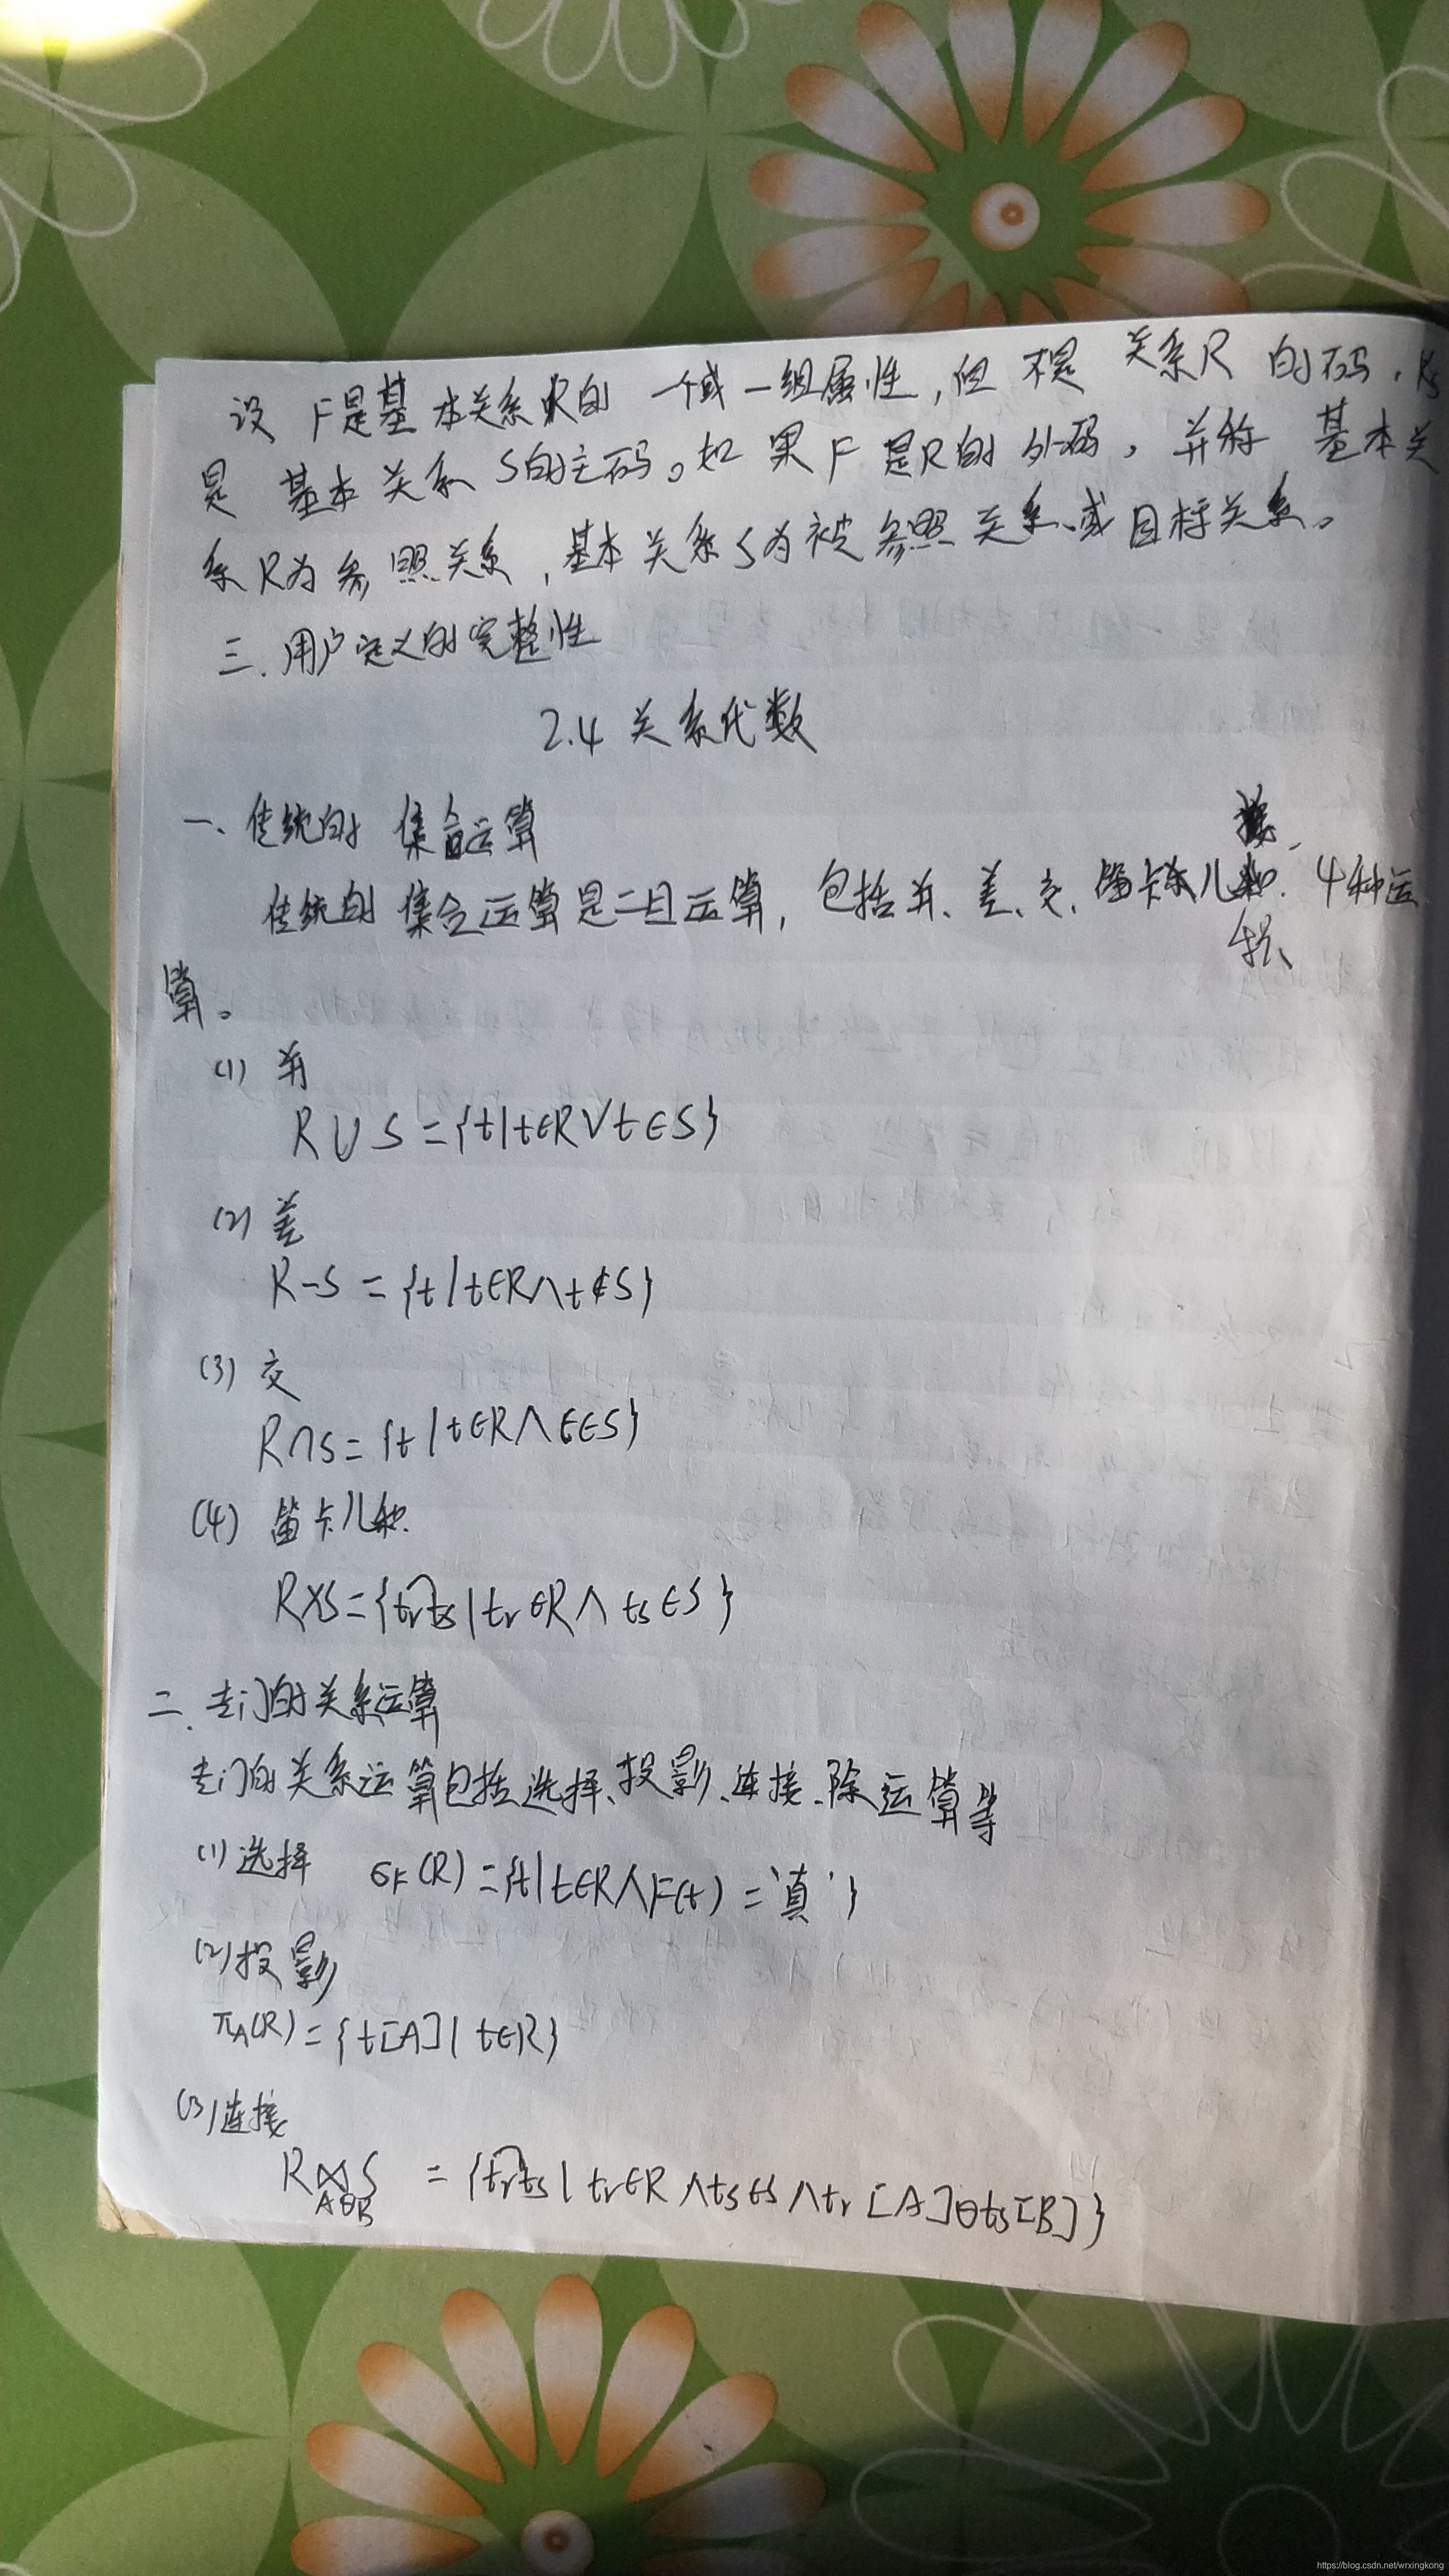 设 F是基本关系R的 一个或一组属性,但 不是 关系R 的码,Ks
是 基本关系 S的主码。如果F是R的外码,并称 基本关
系R为参照关系,基本关系S为被参照关系或目标关系。
三.用户定义的完整性
2.4 关系代数
一、传统的 集合运算
传统的 集合运算是二目运算,包括并、差、交、笛卡尔儿积 4种运
算。
(1) 并
R∪S={t|t∈R∨t∈S}
(2) 差
R-S={t|t∈R∧t∉S}
(3) 交
R∩S={t|t∈R∧t∈S}
(4) 笛卡儿积
R×S={t͡rts|tr∈R∧ts∈S}
二.专门的关系运算
专门的关系运算包括选择、投影、连接、除运算等
(1)选择 σF(R)={t|t∈R∧F(t)='真'}
(2)投影
πA(R)={t[A]|t∈R}
(3)连接
R⋈S ={t͡rts|tr∈R∧ts∈S∧tr[A]θts[B]}
AθB
https://blog.csdn.net/wrxingkong